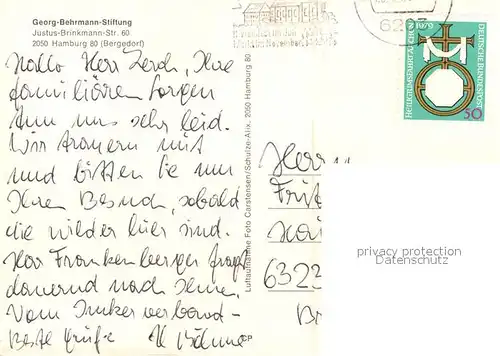 Georg-Behrmann-Stiftung
Justus-Brinkmann-Str. 60
2050 Hamburg 80 (Bergedorf)
Hallo Herr Lerch, Ihre
familiären Sorgen
tun uns sehr leid.
Wir trauern mit
und bitten Sie um
Ihren Besuch, sobald
die wieder hier sind.
Herr Frankenberger fragt
dauernd nach Ihnen.
Vom Imkerverband
Beste Grüße
Luftaufnahme Foto Carstensen/Schulze-Alix, 2050 Hamburg 80
HEILIGTUMSFAHRT AACHEN 1979
DEUTSCHE BUNDESPOST
50
Herrn
Frit
6323
privacy protection
Datenschutz